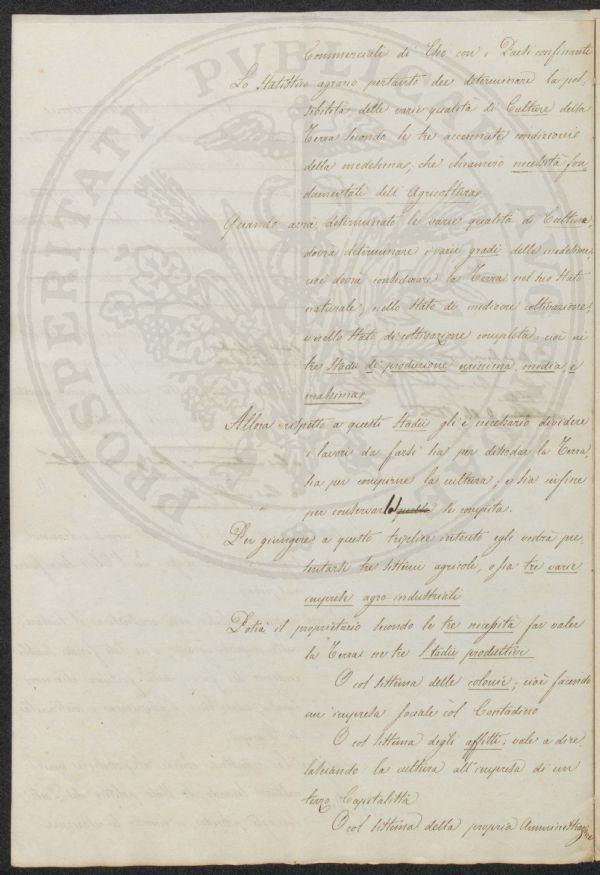 Commerciali di Uso con i Paesi confinanti
Lo Statistico agrario pertanto dee determinare la pos-
sibilità delle varie qualità di Culture della
Terra secondo le tre accennate condizioni
della medesima, che chiamerò necessità fon
damentali dell'Agricoltura.
Quando avrà determinato le varie qualità di Cultura,
dovrà determinare i varii gradi delle medesime
cioè dovrà considerare la Terra nel suo Stato
naturale, nello Stato di mediocre coltivazione,
e nello Stato di coltivazione completa, cioè ne
tre Stadii di produzione minima, media, e
massima.
Allora rispetto a questi Stadii gli è necessario dividere
i lavori da farsi sia per dissodar la Terra
sia per compierne la cultura, e sia infine
per conservarla se compita.
Per giungere a questo triplice intento egli vedrà pre
sentarsi tre sistemi agricoli, o sia tre varie
imprese agro-industriali
Potrà il proprietario secondo le tre necessità far valer
la Terra ne tre Stadii produttivi
O col sistema delle colonie; cioè facendo
un'impresa sociale col Contadino
O col sistema degli affitti; vale a dire
lasciando la cultura all'impresa di un
terzo Capitalista
O col sistema della propria Amministrazione
PROSPERITATI PUBLICAE